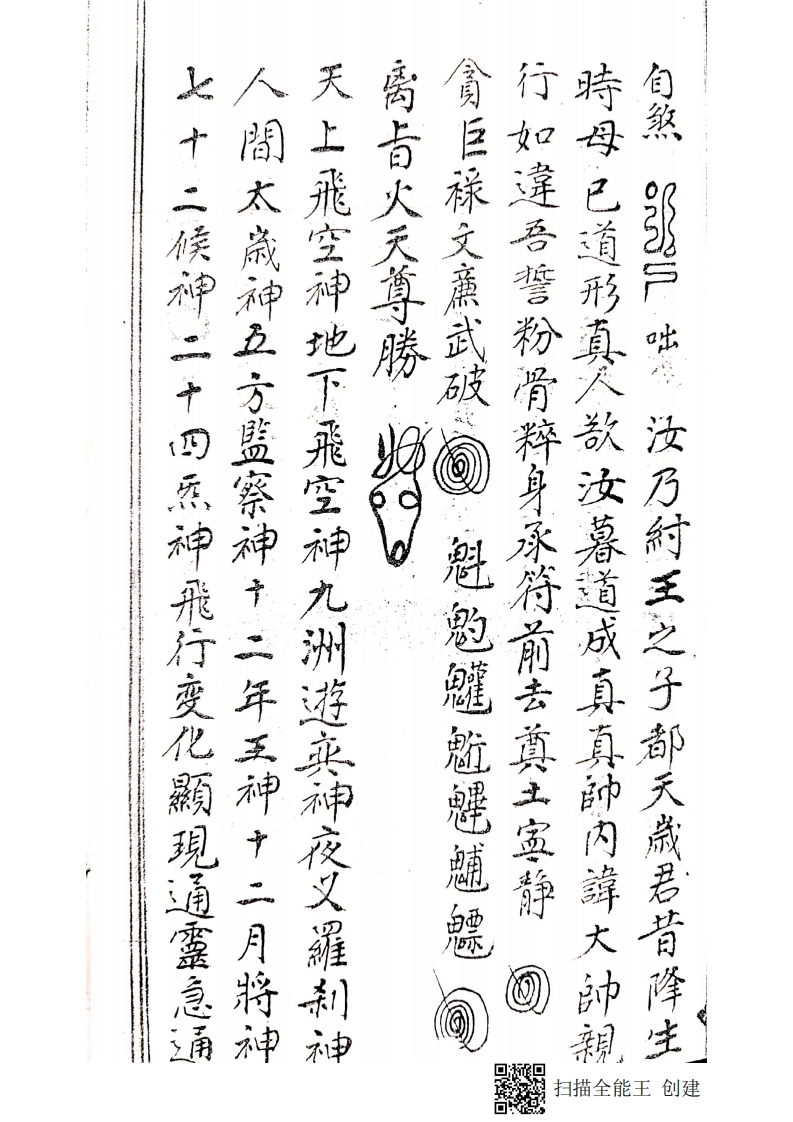 自煞 咄 汝乃紂王之子都天歲君昔降生
時母已道形真人欲汝暮道成真真帥内諱大帥親
行如違吾誓粉骨粹身承符前去奠土寍静
貪巨禄文廉武破 魁䰢魓
离旨火天尊勝
天上飛空神地下飛空神九洲遊奕神夜叉羅刹神
人間太歲神五方監察神十二年王神十二月將神
七十二候神二十四炁神飛行变化顯現通靈急通
扫描全能王 创建